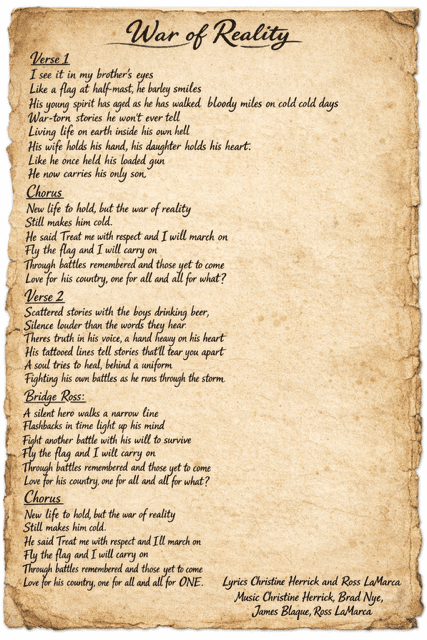 War of Reality
Verse 1
I see it in my brother's eyes
Like a flag at half-mast, he barley smiles
His young spirit has aged as he has walked bloody miles on cold cold days
War-torn stories he won't ever tell
Living life on earth inside his own hell
His wife holds his hand, his daughter holds his heart.
Like he once held his loaded gun
He now carries his only son,
Chorus
New life to hold, but the war of reality
Still makes him cold.
He said Treat me with respect and I will march on
Fly the flag and I will carry on
Through battles remembered and those yet to come
Love for his country, one for all and all for what?
Verse 2
Scattered stories with the boys drinking beer,
Silence louder than the words they hear
Theres truth in his voice, a hand heavy on his heart
His tattooed lines tell stories that'll tear you apart
A soul tries to heal, behind a uniform
Fighting his own battles as he runs through the storm.
Bridge Ross:
A silent hero walks a narrow line
Flashbacks in time light up his mind
Fight another battle with his will to survive
Fly the flag and I will carry on
Through battles remembered and those yet to come
Love for his country, one for all and all for what?
Chorus
New life to hold, but the war of reality
Still makes him cold.
He said Treat me with respect and I'll march on
Fly the flag and I will carry on
Through battles remembered and those yet to come
Love for his country, one for all and all for ONE.
Lyrics Christine Herrick and Ross LaMarca
Music Christine Herrick, Brad Nye,
James Blaque, Ross LaMarca